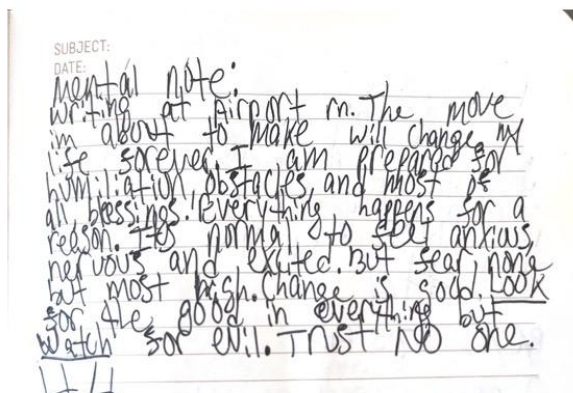 SUBJECT:
DATE:
Mental note:
Writing at Airport rn. The move
im about to make will change my
life forever. I am prepared for
humiliation, obstacles, and most of
all blessings. Everything happens for a
reason. Its normal to feel anxious,
nervous and excited. But fear none
but most high. Change is good. Look
for the good in everything but
watch for evil. Trust no one.